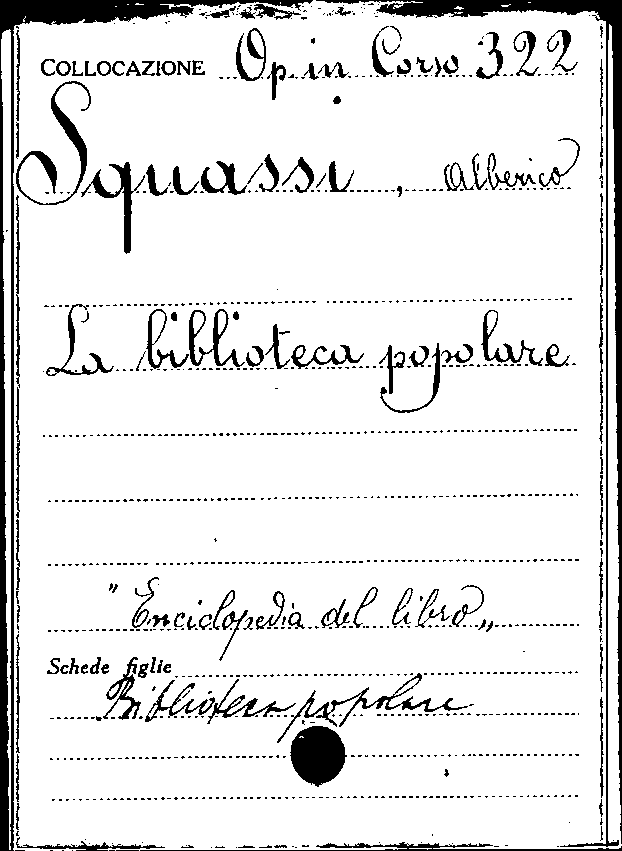 COLLOCAZIONE Op. in Corso 322
Squassi, Alberico
La biblioteca popolare
"Enciclopedia del libro„
Schede figlie
Biblioteca popolare